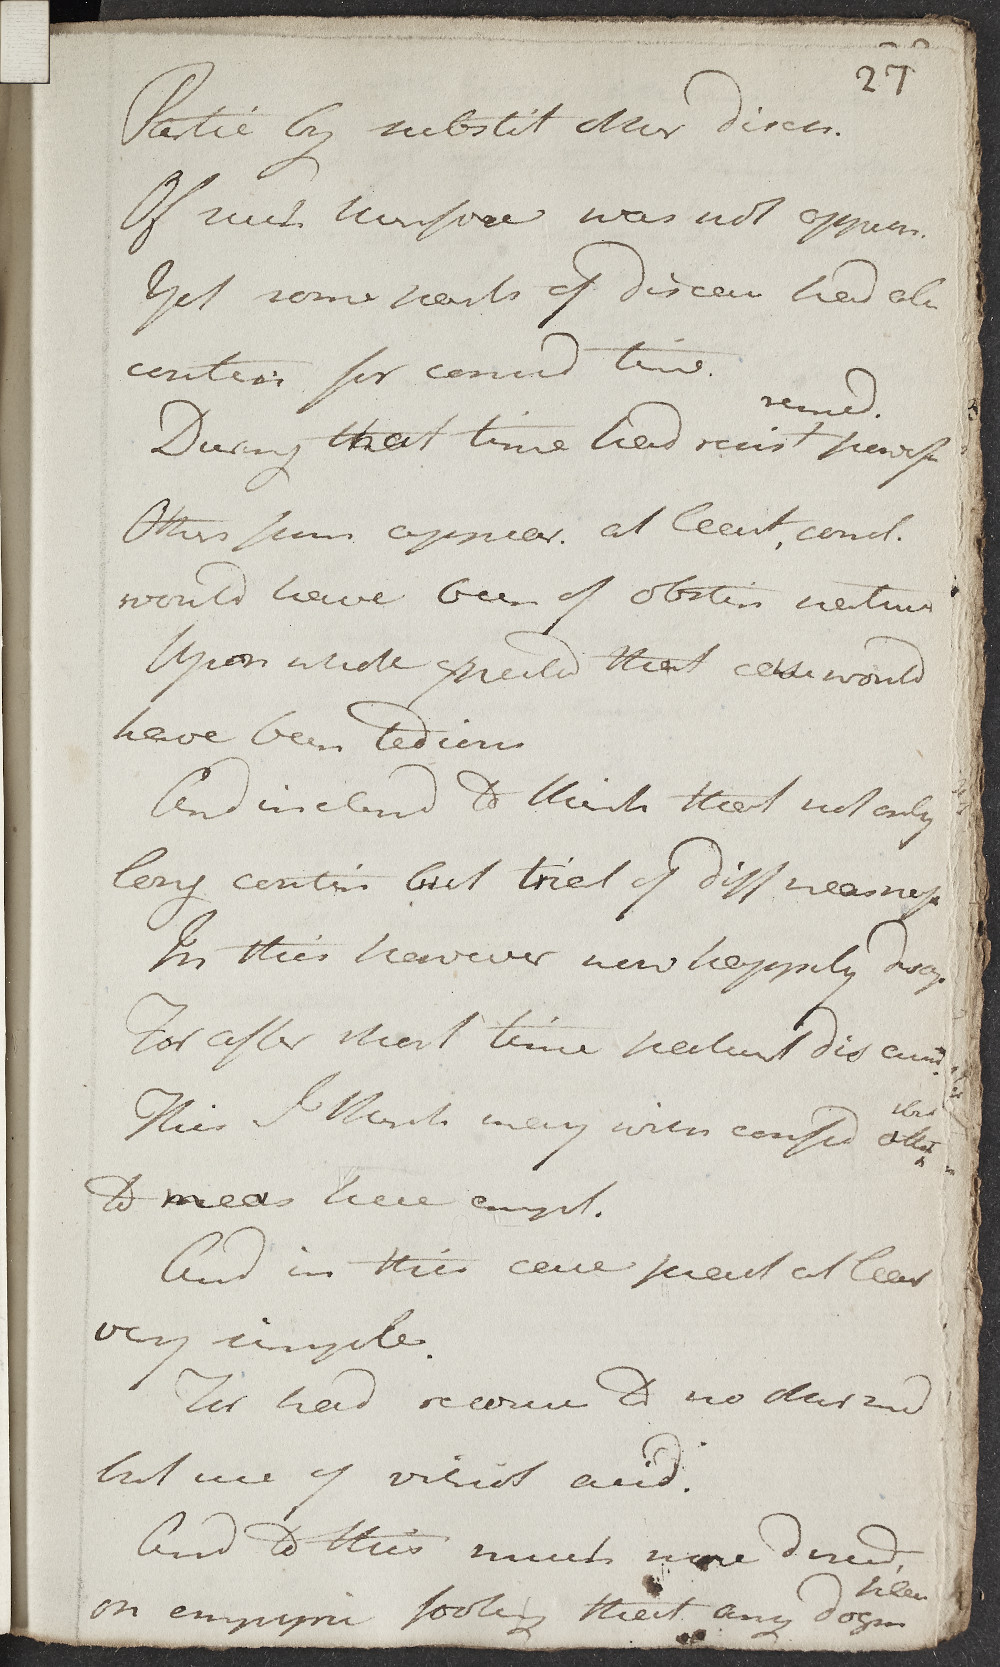 27
Partic by substit other diseas.
Of such however was not appear.
Yet some parts of disease had alr
contin for consid time.
During that time had resist powerf remed.
Others from appear. at least, concl.
would have been of obstin nature
Upon whole expected that case would
have been tedious
And inclend to think that not only
long contin but trial of diff necessary
In this however were happily disap.
For after short time patient dis cured.
This I think may with confid attrib
to meas here empl.
And in this case pract at least
very simple.
For had recourse to no other rmd
but use of vitriol acid.
And to this much more direct.
on empyric footing that any dogm plan